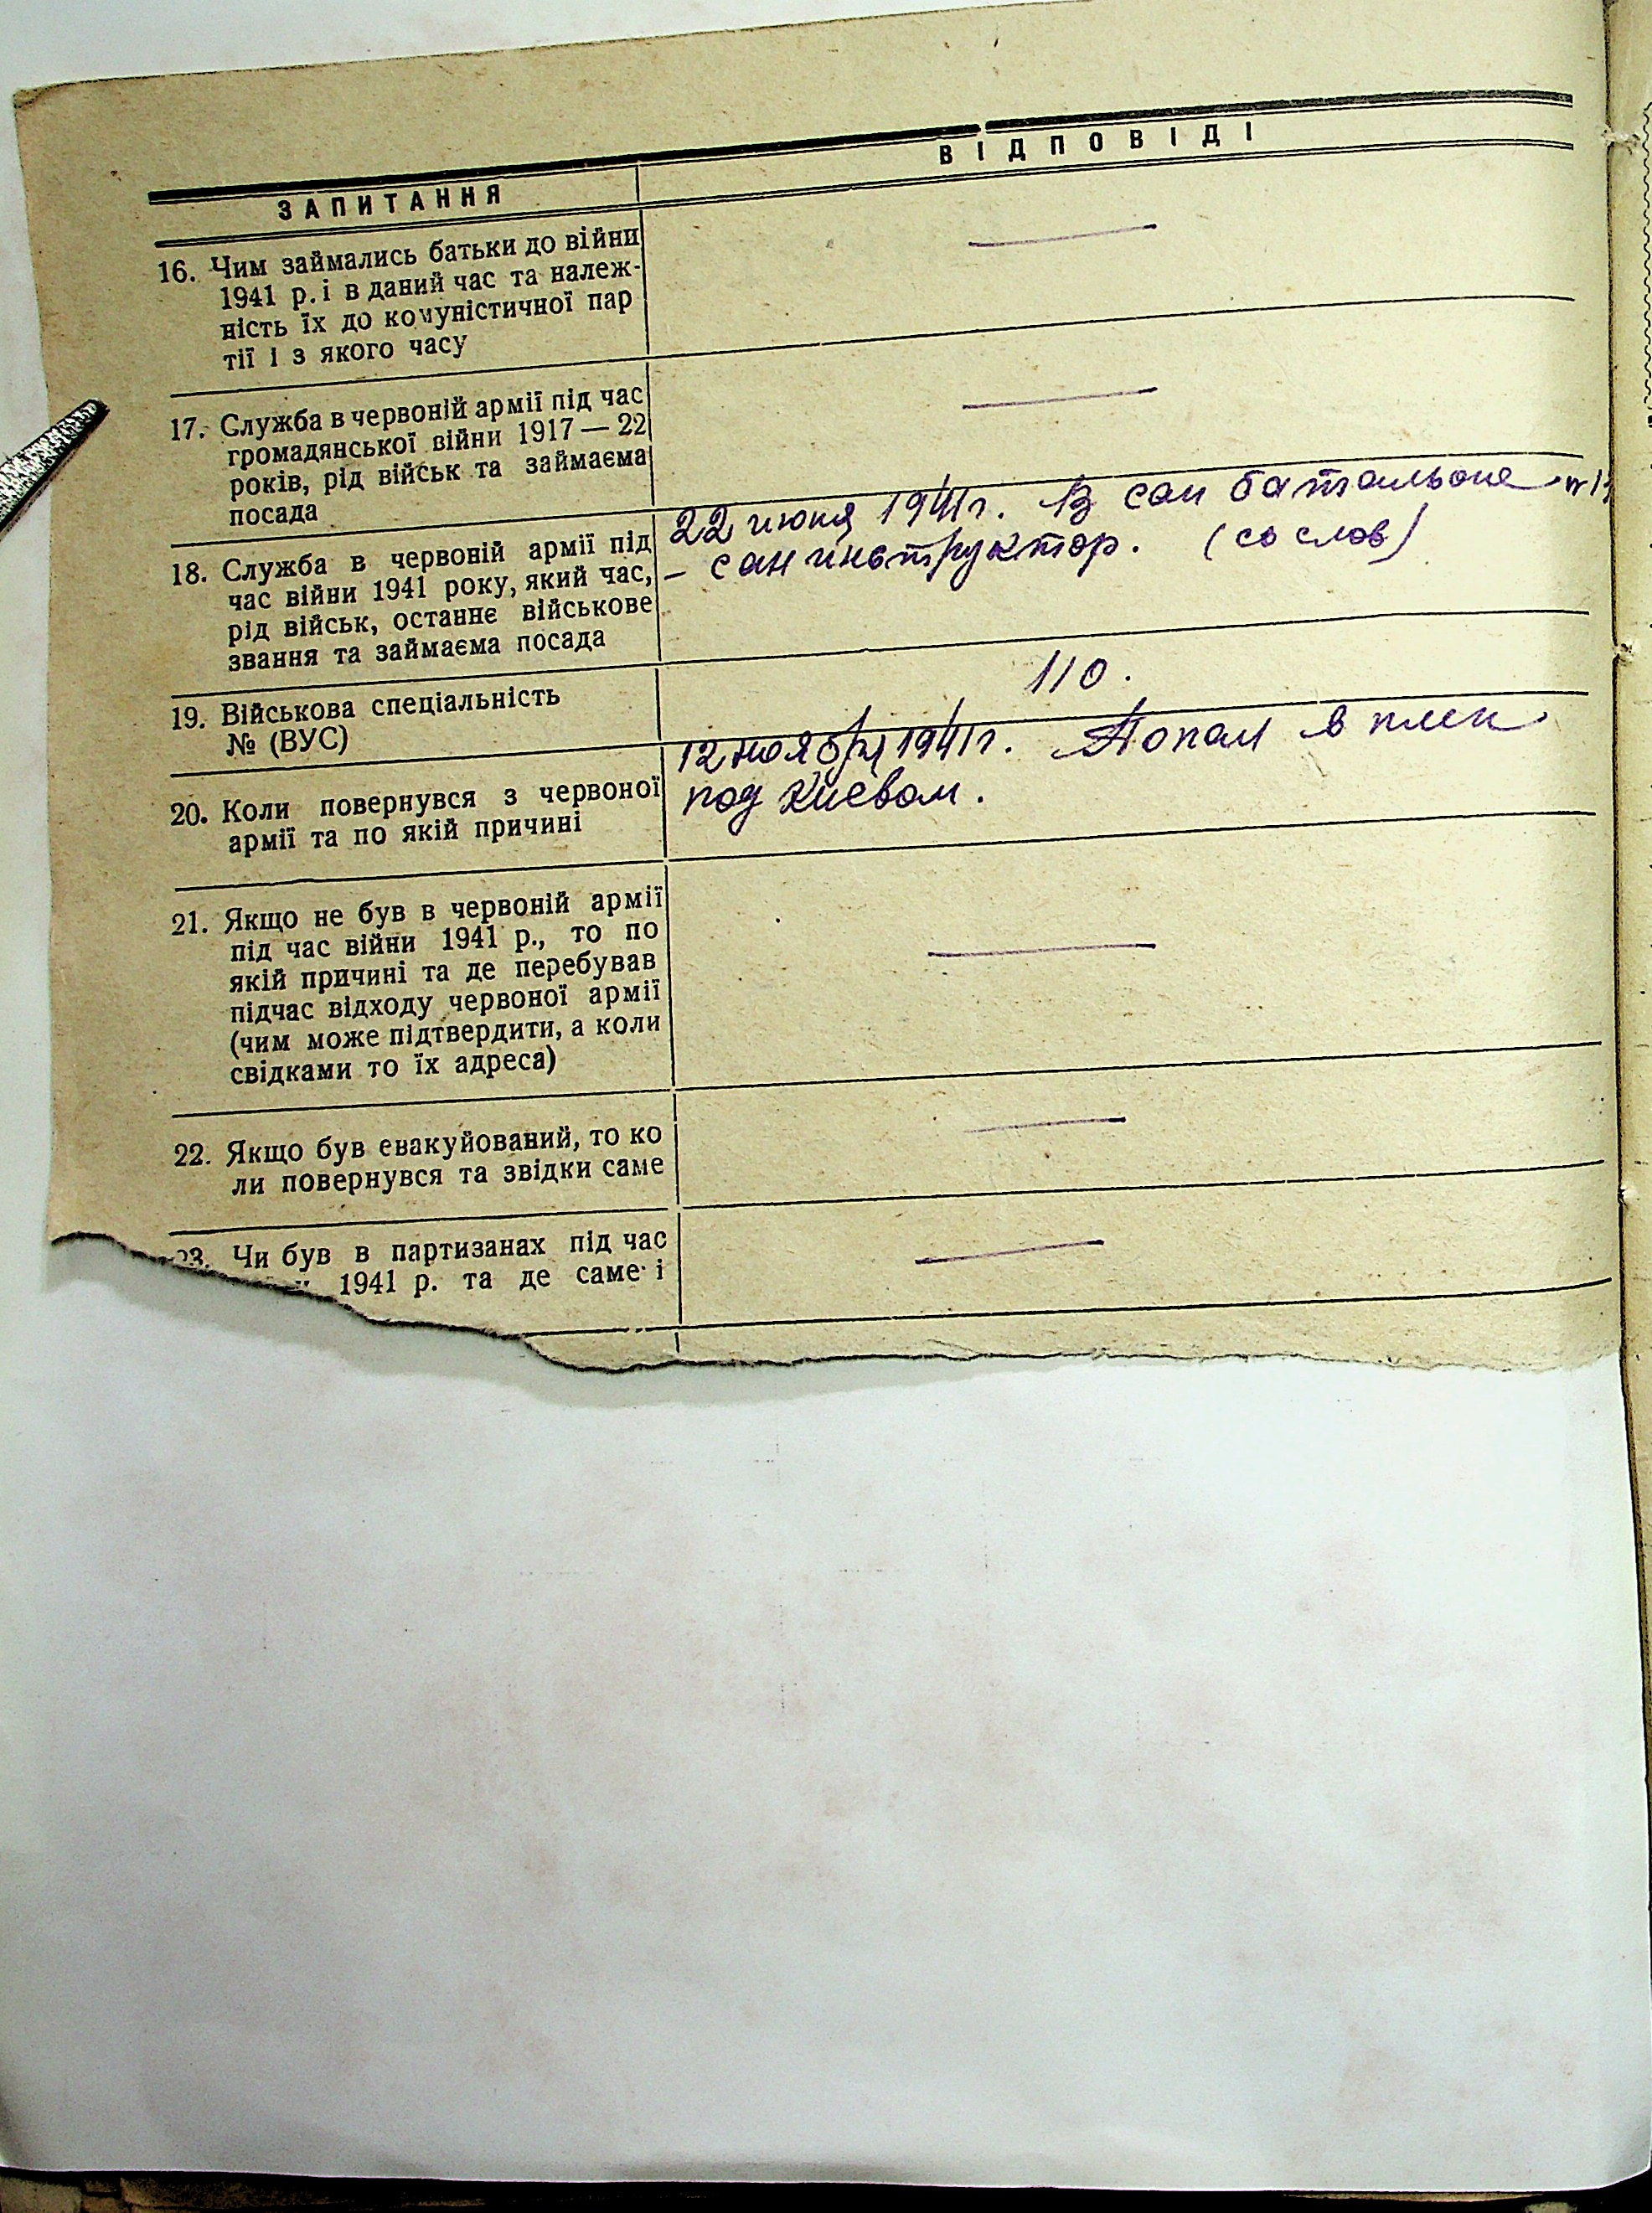 ЗАПИТАННЯ
ВІДПОВІДІ
16. Чим займались батьки до війни
1941 р. і в даний час та належ-
ність їх до комуністичної пар
тії і з якого часу
17. Служба в червоній армії під час
громадянської війни 1917 — 22
років, рід військ та займаєма
посада
18. Служба в червоній армії під
час війни 1941 року, який час,
рід військ, останнє військове
звання та займаєма посада
22 июня 1941 г. В сан батальоне
– сан инструктор. (со слов)
19. Військова спеціальність
№ (ВУС)
110.
20. Коли повернувся з червоної
армії та по якій причині
12 ноября 1941 г. Попал в плен
под Киевом.
21. Якщо не був в червоній армії
під час війни 1941 р., то по
якій причині та де перебував
підчас відходу червоної армії
(чим може підтвердити, а коли
свідками то їх адреса)
22. Якщо був евакуйований, то ко
ли повернувся та звідки саме
23. Чи був в партизанах під час
1941 р. та де саме і